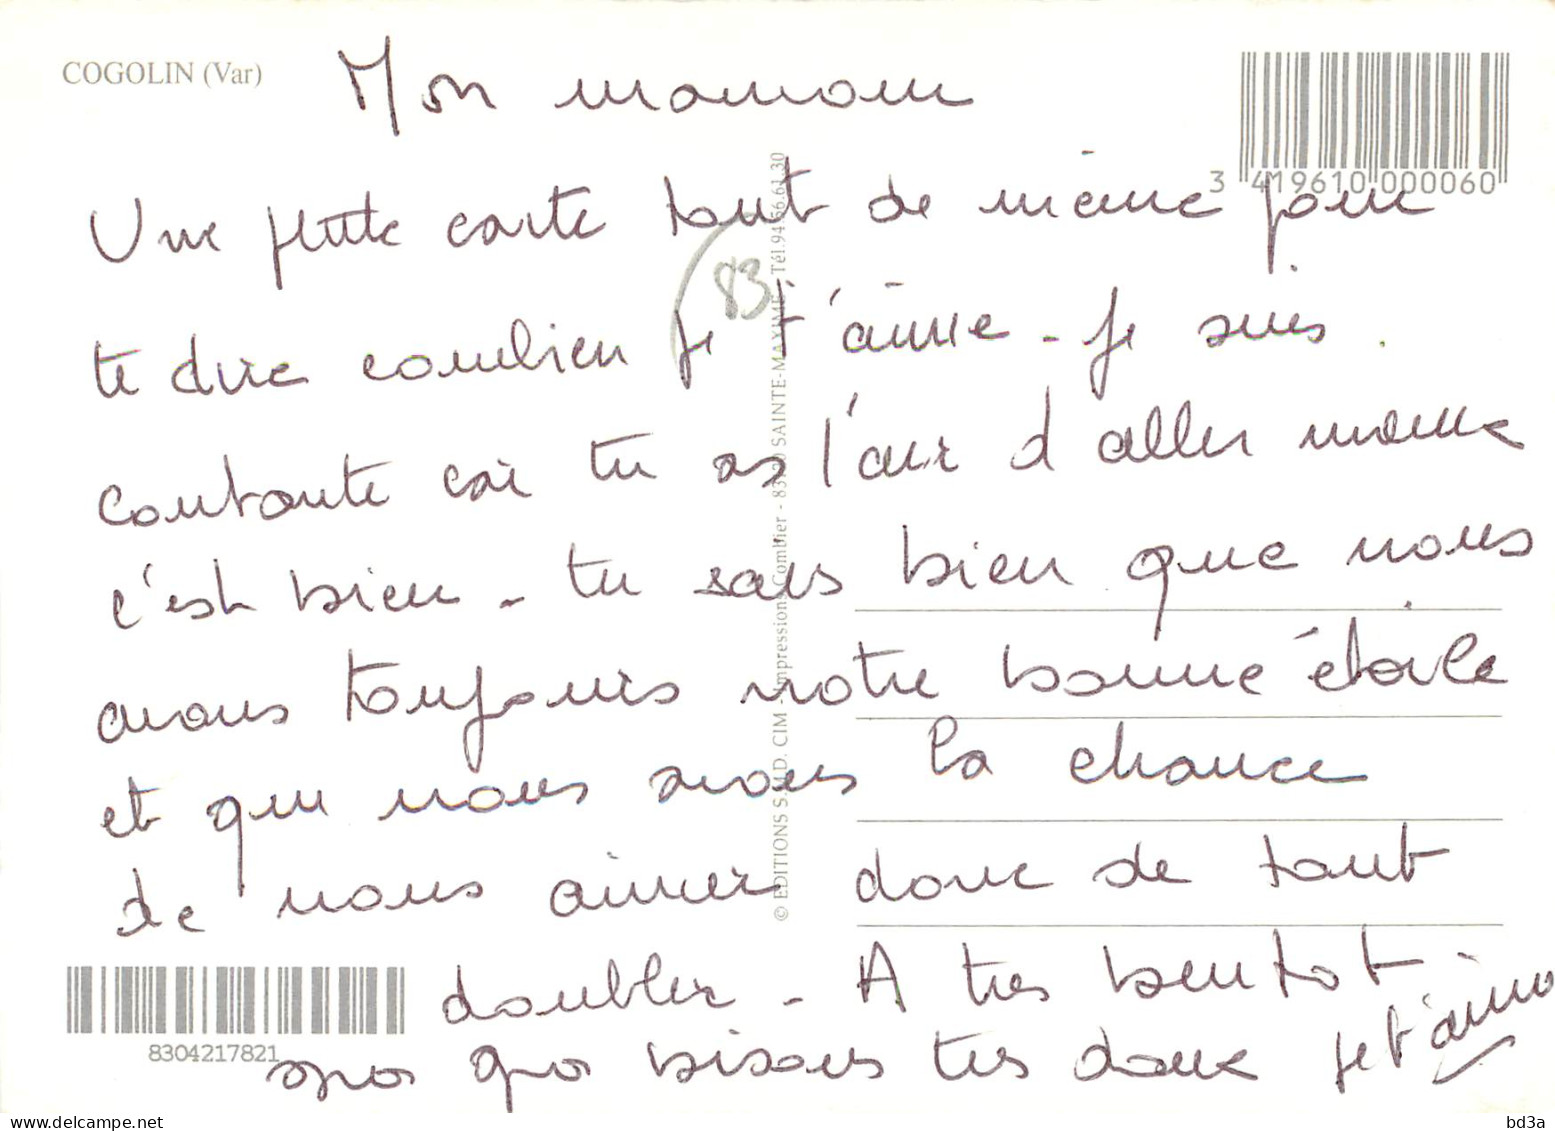 COGOLIN (Var)
Mon mamour
3 419610 000060
Une petite carte tout de même pour
te dire combien je t'aime - Je suis
contente car tu as l'air d'aller mieux
c'est bien - tu sais bien que nous
avons toujours notre bonne étoile
et que nous avons la chance
de nous aimer donc de tout
doubler - A très bentot
bisous très doux je t'aime
83
© EDITIONS S.M.D. CIM - Impression Combier - 83120 SAINTE-MAXIME - Tél.94.56.61.30
8304217821
www.delcampe.net
bd3a